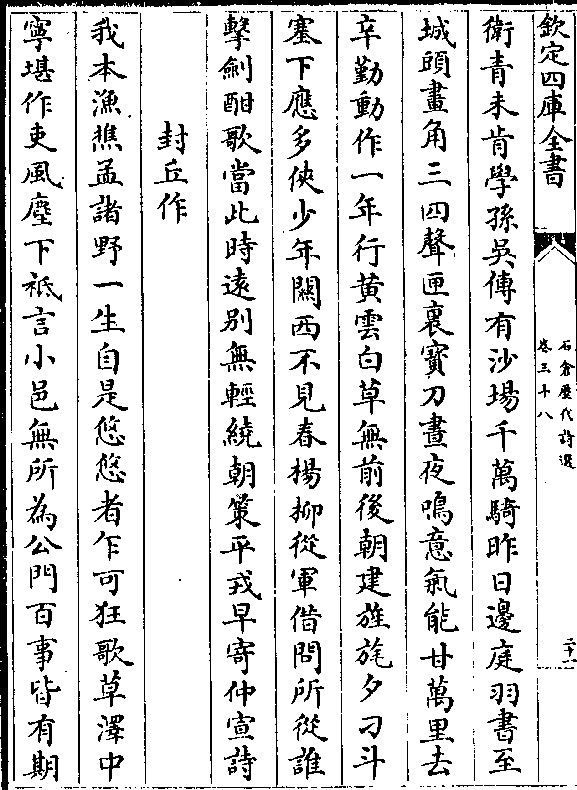 欽定四庫全書
石倉歷代詩選
卷三十八
二十一
衛青未肯學孫吳傳有沙場千萬騎昨日邊庭羽書至
城頭畫角三四聲匣裏寳刀晝夜鳴意氣能甘萬里去
辛勤動作一年行黄雲白草無前後朝建旌旄夕刁斗
塞下應多俠少年闗西不見春楊柳從軍借問所從誰
擊劍酣歌當此時遠别無輕繞朝策平戎早寄仲宣詩
封丘作
我本漁樵孟諸野一生自是悠悠者乍可狂歌草澤中
寧堪作吏風塵下祗言小邑無所為公門百事皆有期